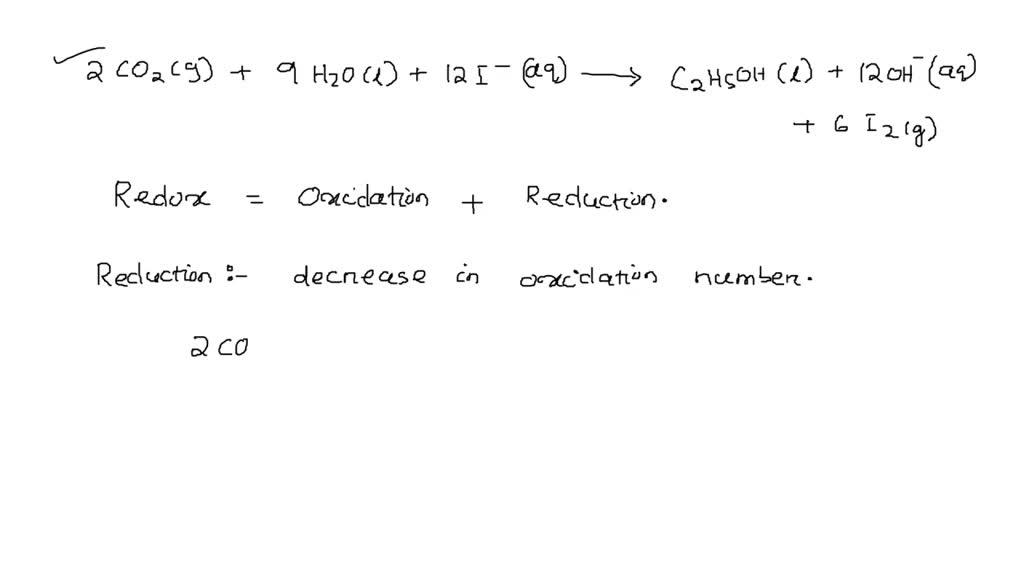 2 CO2 (g) + 9 H2O (l) + 12 I⁻ (aq) → C2H5OH (l) + 12 OH⁻ (aq)
+ 6 I2 (g)
Redox = Oxidation + Reduction.
Reduction :- decrease in oxidation number.
2 CO